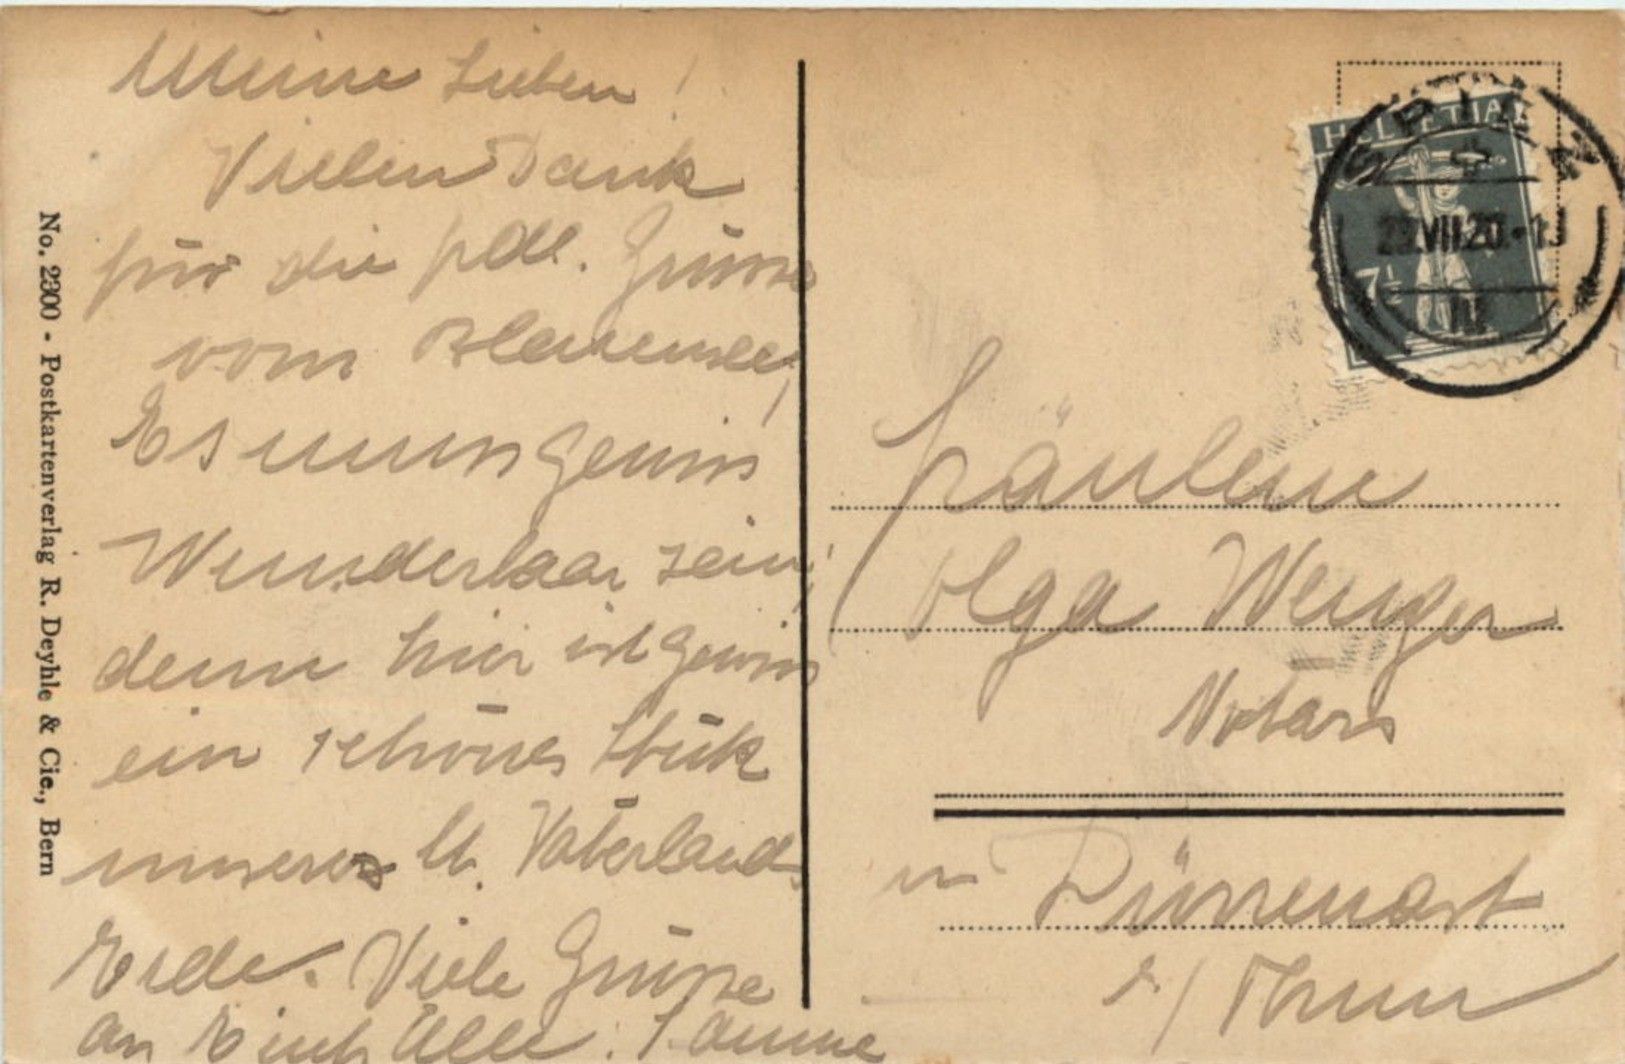 Meine Lieben!
Vielen Dank
für die frdl. Grüsse
vom Blausee,
Es muss gewiss
Wunderbar sein,
denn hier ist gewiss
ein schönes Stük
unseres lb. Vaterlands
Erde. Viele Grüsse
an Euch Alle.
No. 2300 - Postkartenverlag R. Deyhle & Cie., Bern
HELVETIA
7½
SPIEZ
VII 20
Fräulein
Olga Wenger
Notars
in Dürrenast
b/ Thun